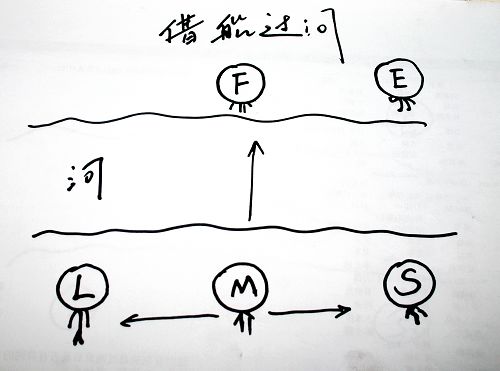 借船过河
F E
河
L M S